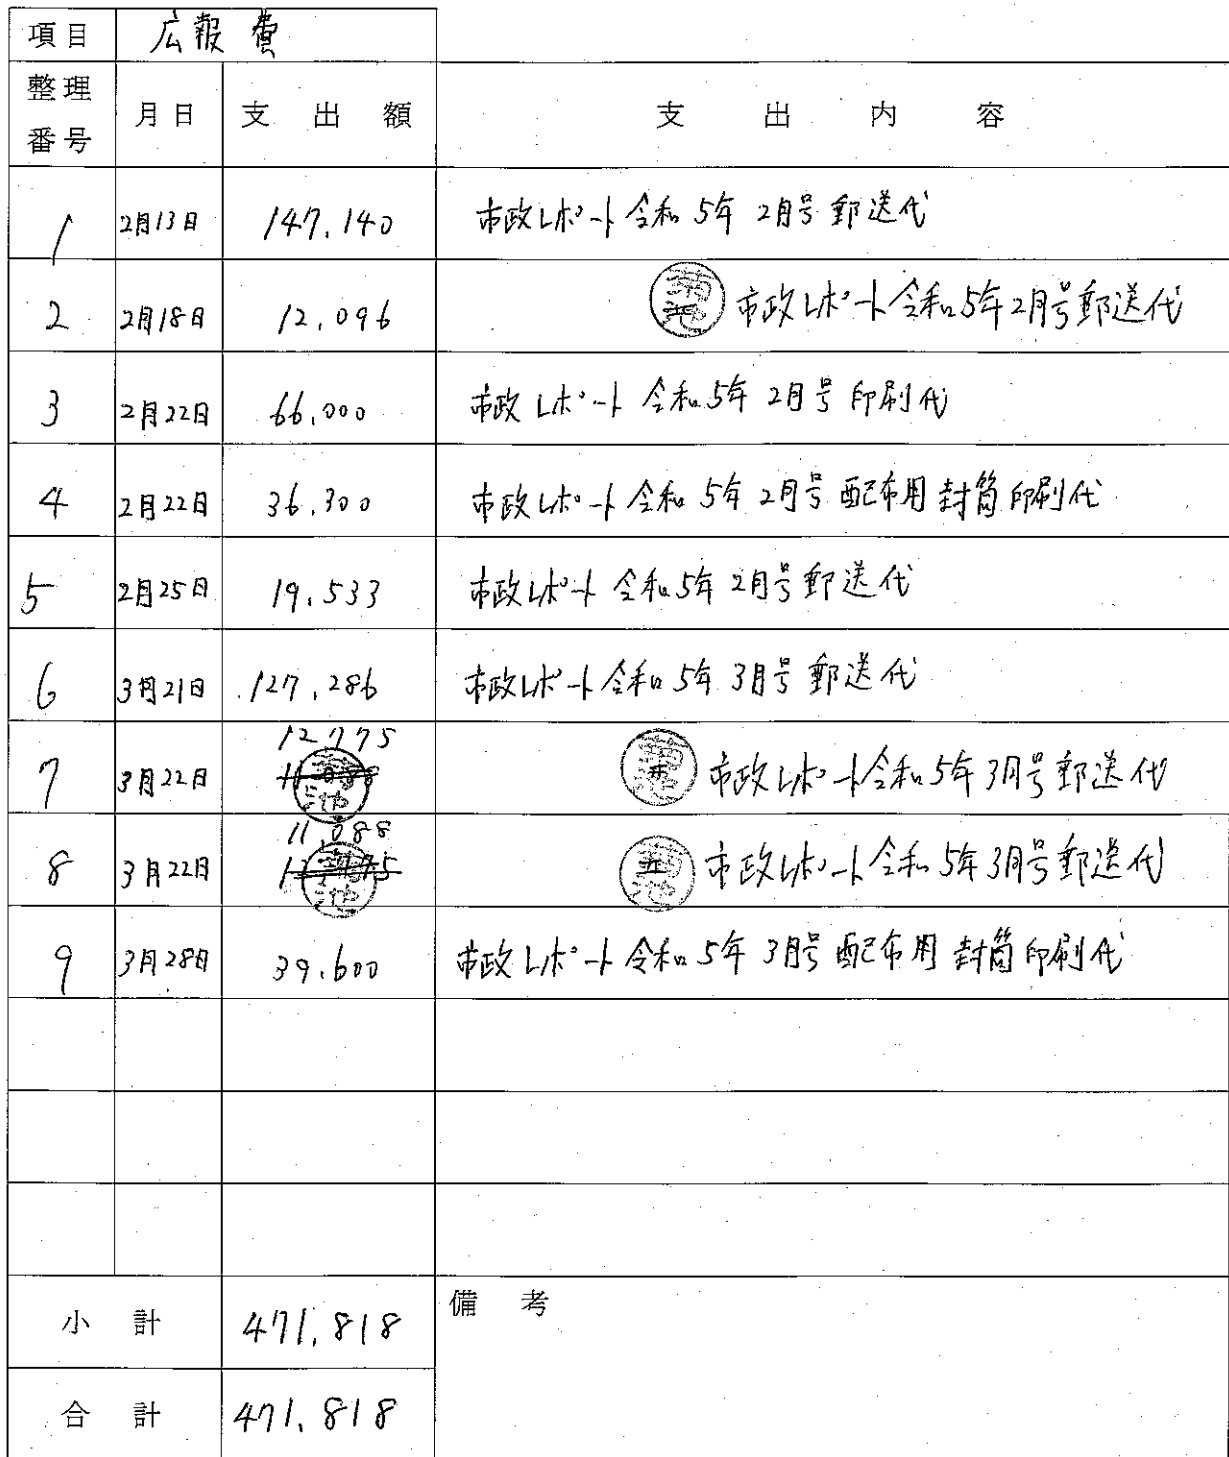 項目 広報費
整理番号 月日 支出額 支出内容
1 2月13日 147,140 市政レポート令和5年2月号郵送代
2 2月18日 12,096 菊池 市政レポート令和5年2月号郵送代
3 2月22日 66,000 市政レポート令和5年2月号印刷代
4 2月22日 36,300 市政レポート令和5年2月号配布用封筒印刷代
5 2月25日 19,533 市政レポート令和5年2月号郵送代
6 3月21日 127,286 市政レポート令和5年3月号郵送代
12,775
7 3月22日 11,088 菊池 菊池 市政レポート令和5年3月号郵送代
11,088
8 3月22日 12,775 菊池 菊池 市政レポート令和5年3月号郵送代
9 3月28日 39,600 市政レポート令和5年3月号配布用封筒印刷代
小計 471,818 備考
合計 471,818